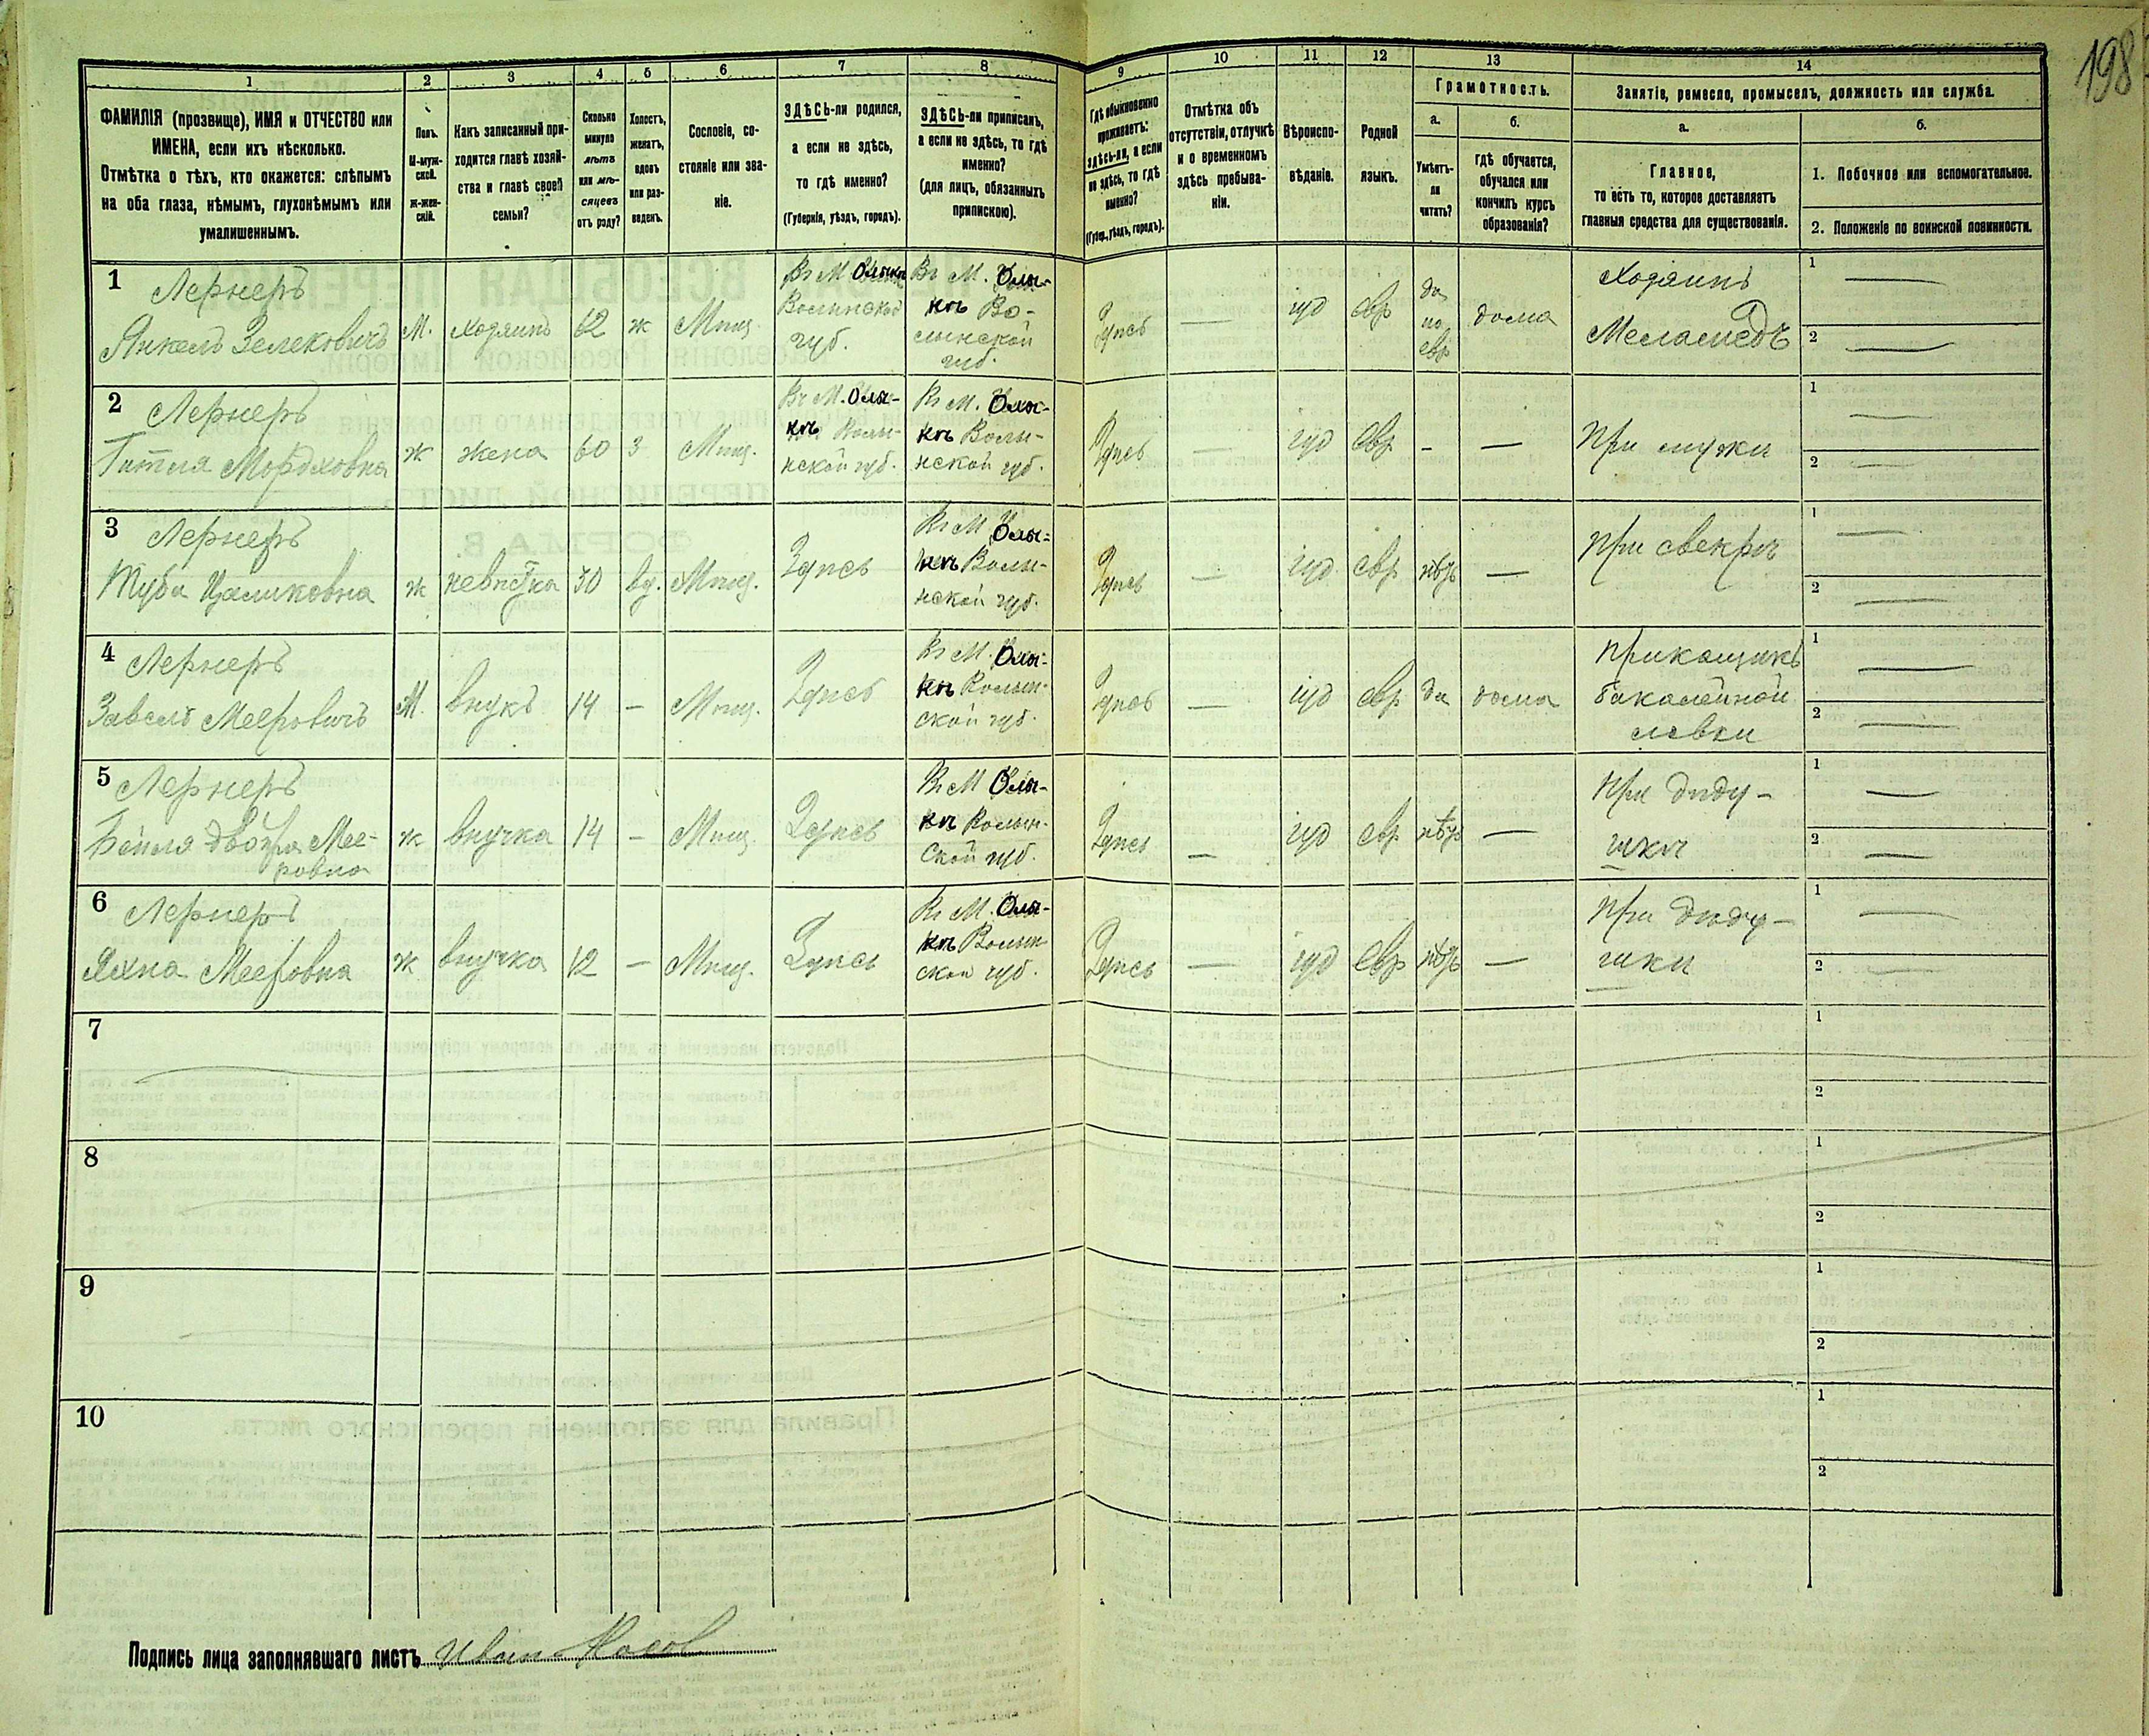 198
1 2 3 4 5 6 7 8 9 10 11 12 13 14
ФАМИЛІЯ (прозвище), ИМЯ и ОТЧЕСТВО или
ИМЕНА, если ихъ нѣсколько.
Отмѣтка о тѣхъ, кто окажется: слѣпымъ
на оба глаза, нѣмымъ, глухонѣмымъ или
умалишеннымъ.
Полъ.
М-муж-
ской.
ж-жен-
скій.
Какъ записанный при-
ходится главѣ хозяй-
ства и главѣ своей
семьи?
Сколько
минуло
лѣтъ
или мѣ-
сяцевъ
отъ роду?
Холостъ,
женатъ,
вдовъ
или раз-
веденъ.
Сословіе, со-
стояніе или зва-
ніе.
ЗДѢСЬ-ли родился,
а если не здѣсь,
то гдѣ именно?
(Губернія, уѣздъ, городъ).
ЗДѢСЬ-ли приписанъ,
а если не здѣсь, то гдѣ
именно?
(для лицъ, обязанныхъ
припискою).
Гдѣ обыкновенно
проживаетъ:
здѣсь-ли, а если
не здѣсь, то гдѣ
именно?
(Губер., уѣздъ, городъ).
Отмѣтка объ
отсутствіи, отлучкѣ
и о временномъ
здѣсь пребыва-
ніи.
Вѣроиспо-
вѣданіе.
Родной
языкъ.
Грамотность.
а.
Умѣетъ-
ли
читать?
б.
гдѣ обучается,
обучался или
кончилъ курсъ
образованія?
Занятіе, ремесло, промыселъ, должность или служба.
а.
Главное,
то есть то, которое доставляетъ
главныя средства для существованія.
б.
1. Побочное или вспомогательное.
2. Положеніе по воинской повинности.
1 Лернеръ
Янкель Зелековичъ
М. хозяинъ 62 ж Мѣщ.
Въ М. Олыкѣ
Волынской
губ.
Въ М. Олы-
кѣ Во-
лынской
губ.
Здѣсь — іуд евр
да
по
евр
дома
Хозяинъ
Меламедъ
1 —
2 —
2 Лернеръ
Титля Мордховна
ж жена 60 з Мѣщ.
Въ М. Олы-
кѣ Волы-
нской губ.
Въ М. Олы-
кѣ Волы-
нской губ.
Здѣсь — іуд евр - —
При мужѣ
1 —
2 —
3 Лернеръ
Туба Цаликовна
ж невѣстка 30 вд. Мѣщ. Здѣсь
Въ М. Олы-
кѣ Волы-
нской губ.
Здѣсь — іуд. евр нѣтъ —
При свекрѣ
1 —
2 —
4 Лернеръ
Завель Мееровичъ
М. внукъ 14 — Мѣщ. Здѣсь
Въ М. Олы-
кѣ Волын-
ской губ.
Здѣсь — іуд евр да дома
Прикащикъ
бакалейной
лавки
1 —
2 —
5 Лернеръ
Бейля Двойра Мее-
ровна
ж внучка 14 — Мѣщ. Здѣсь
Въ М. Олы-
кѣ Волын-
ской губ.
Здѣсь — іуд евр нѣтъ —
При дѣду-
шкѣ
1 —
2 —
6 Лернеръ
Яхна Мееровна
ж внучка 12 — Мѣщ. Здѣсь
Въ М. Олы-
кѣ Волын-
ской губ.
Здѣсь — іуд евр нѣтъ —
При дѣду-
шкѣ
1 —
2 —
7
1
2
8
1
2
9
1
2
10
1
2
Подпись лица заполнявшаго листъ Иванъ Косов